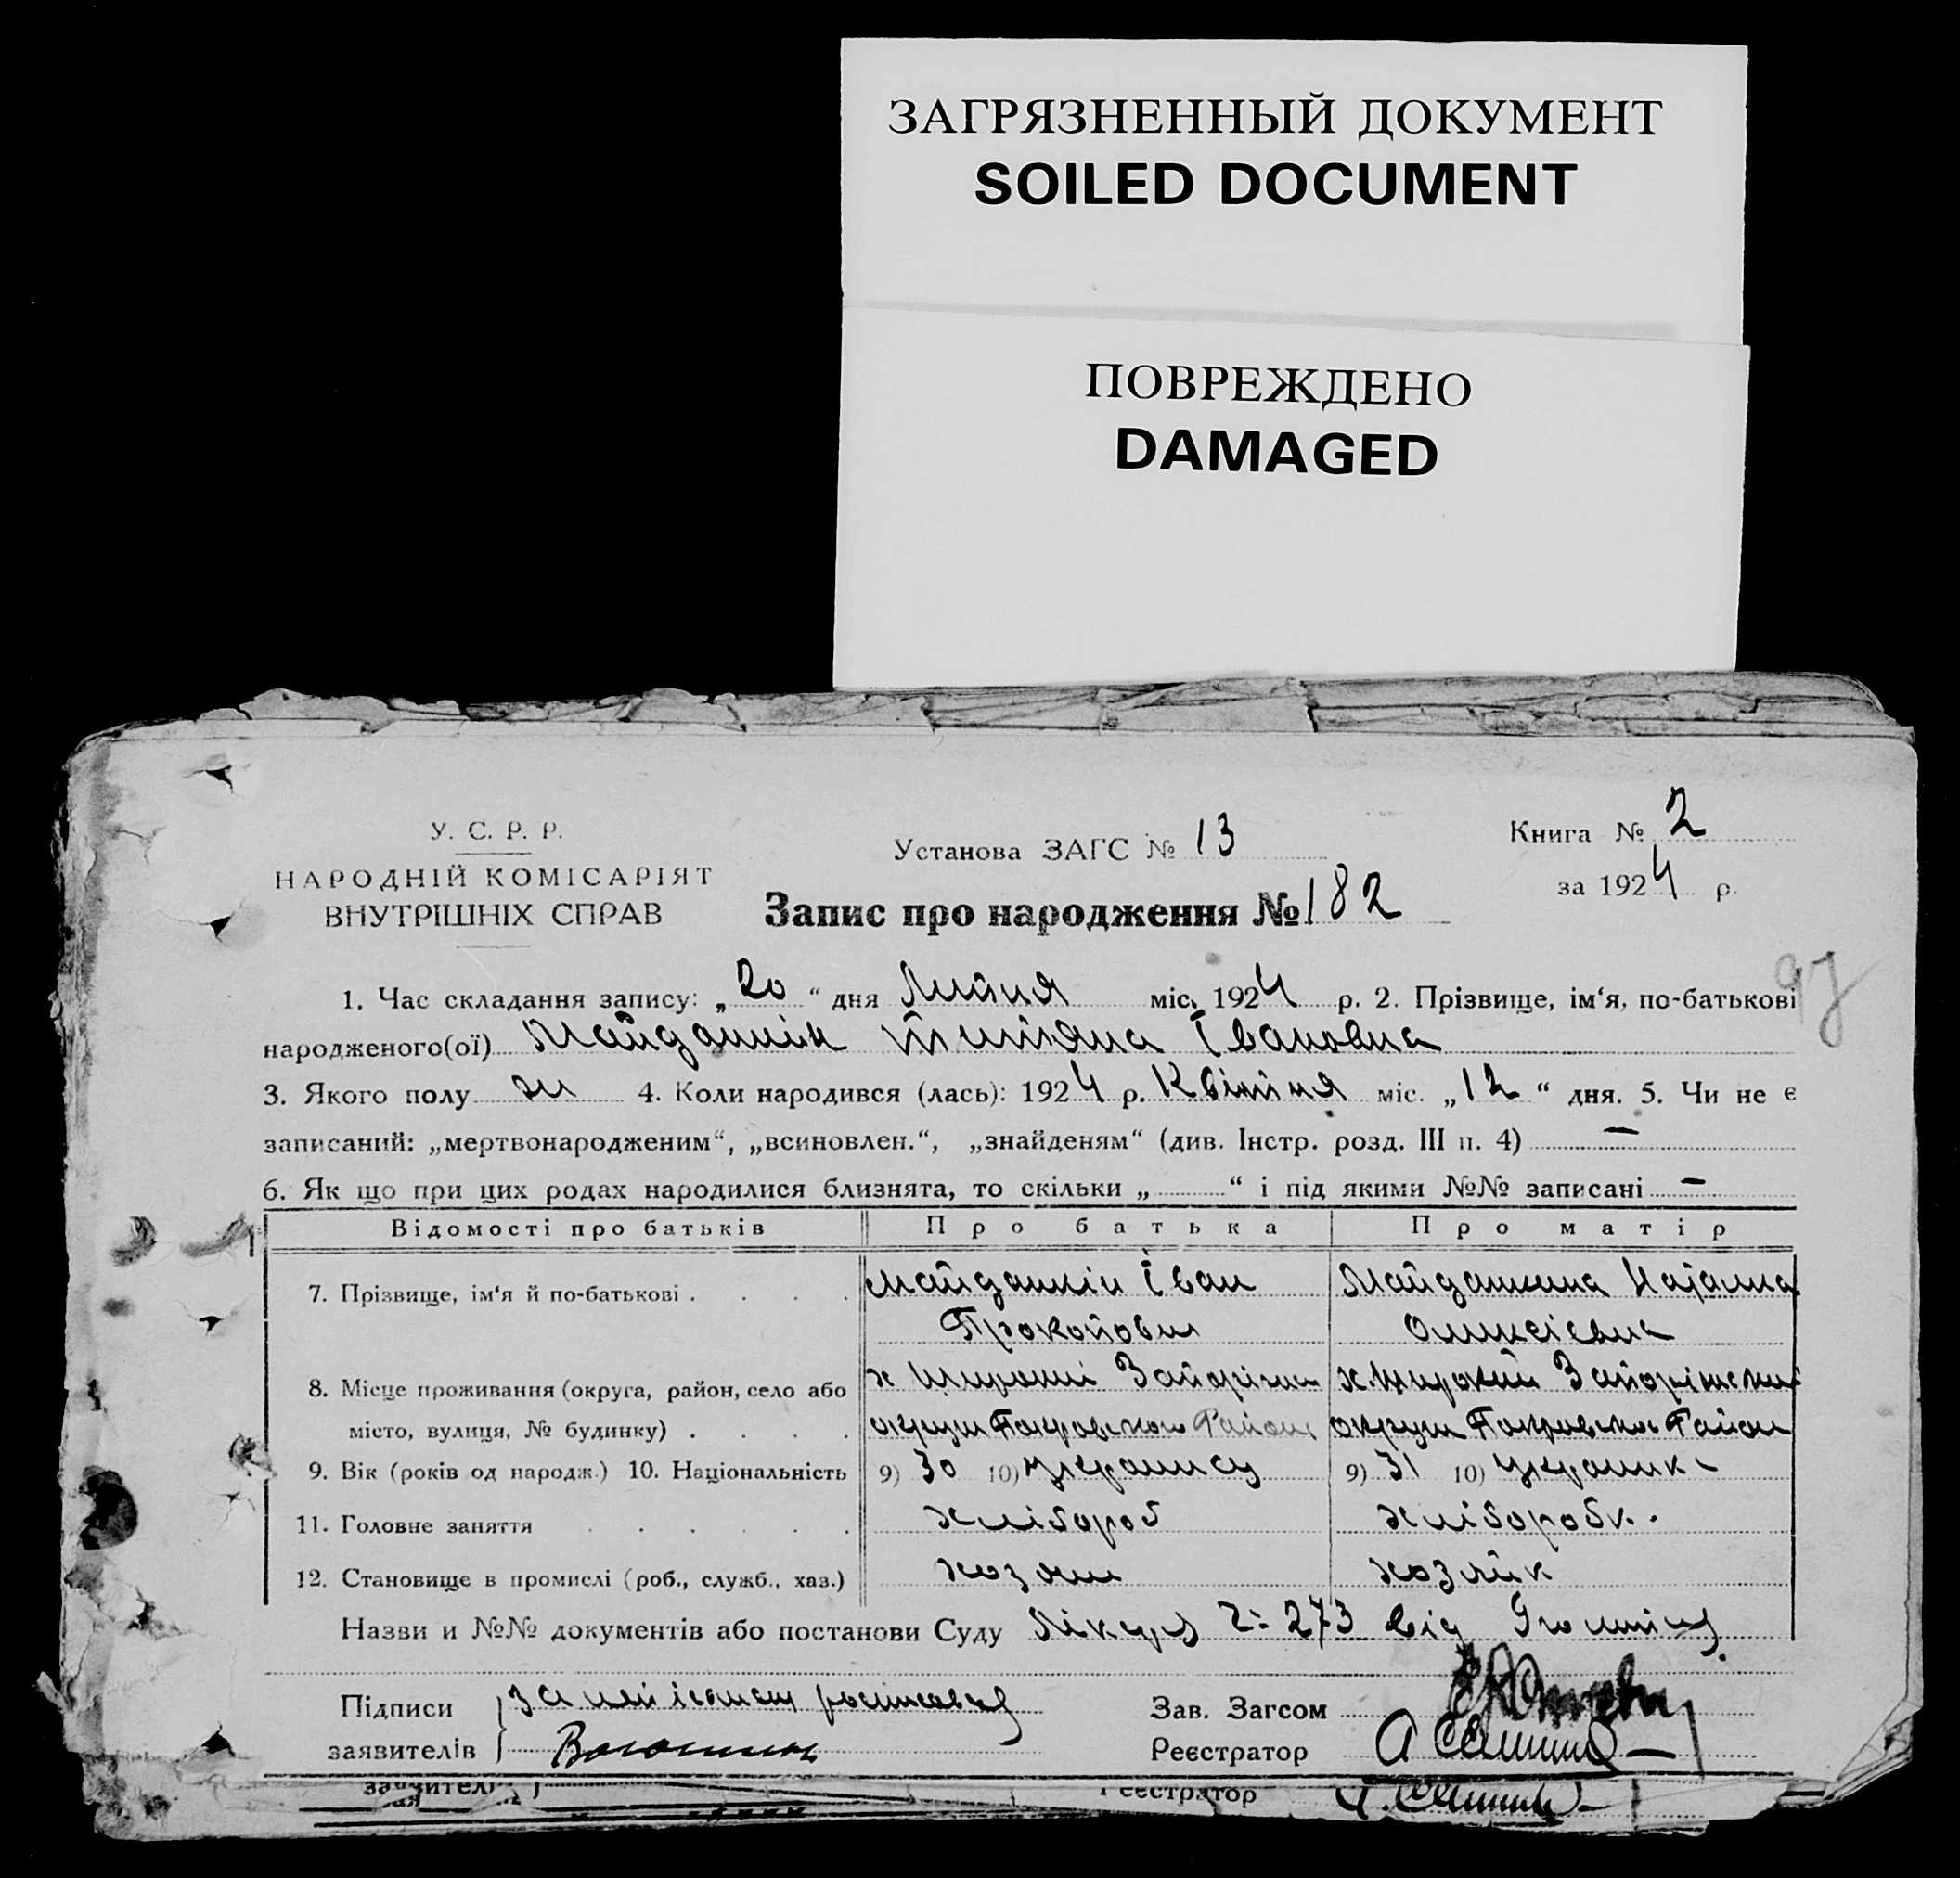 ЗАГРЯЗНЕННЫЙ ДОКУМЕНТ
SOILED DOCUMENT
ПОВРЕЖДЕНО
DAMAGED
У. С. Р. Р.
НАРОДНІЙ КОМІСАРІЯТ
ВНУТРІШНІХ СПРАВ
Установа ЗАГС № 13
Книга № 2
за 1924 р.
Запис про народження № 182
97
1. Час складання запису: „20“ дня Липня міс. 1924 р. 2. Прізвище, ім‘я, по-батькові
народженого(ої) Майданнік Титяна Івановна
3. Якого полу жи 4. Коли народився (лась): 1924 р. Квітня міс. „12“ дня. 5. Чи не є
записаний: „мертвонародженим“, „всиновлен.“, „знайденям“ (див. Інстр. розд. III п. 4) —
6. Як що при цих родах народилися близнята, то скільки „ “ і під якими №№ записані —
Відомості про батьків Про батька Про матір
7. Прізвище, ім‘я й по-батькові . . . . Майданнік Іван Майданикина
Прокопович Оликсієвна
8. Місце проживання (округа, район, село або х Широкий Запоріжск х. Широкий Запоріжский
місто, вулиця, № будинку) . . . . округи Покровського Району округи Покровсько Район
9. Вік (років од народж.) 10. Національність 9) 30 10) Українец 9) 31 10) Українк
11. Головне заняття . . . . . . хлібороб хліборобк.
12. Становище в промислі (роб., служб., хаз.) хозяин хозяйк
Назви и №№ документів або постанови Суду 273 від
Підписи за расписався
заявителів Волошин
Зав. Загсом
Реєстратор
Реєстратор